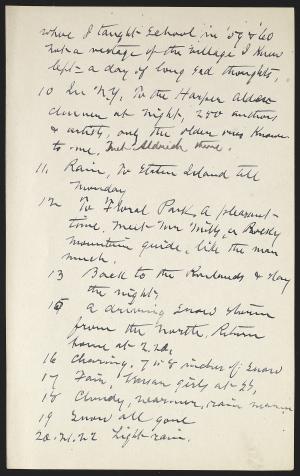 where I taught school in '59 & '60
not a vestige of the village I knew
left - a day of long sad thoughts.
10 In N.Y. To the Harper Alden
dinner at night, 250 authors
& artists, only the older ones known
to me. Met Aldrich there.
11. Rain, To Staten Island till
Monday
12 To Floral Park. A pleasant
time. Meet Mr Mills, a Rocky
Mountain guide, like the man
much.
13 Back to the & stay
the night.
15 A driving snow storm
from the North. Return
home at 2.20.
16 Clearing. 7 or 8 inches of snow
17 Fair, Vassar girls at S.S.
18 Cloudy, warmer, rain
19 Snow all gone
20.21.22 Light rain.